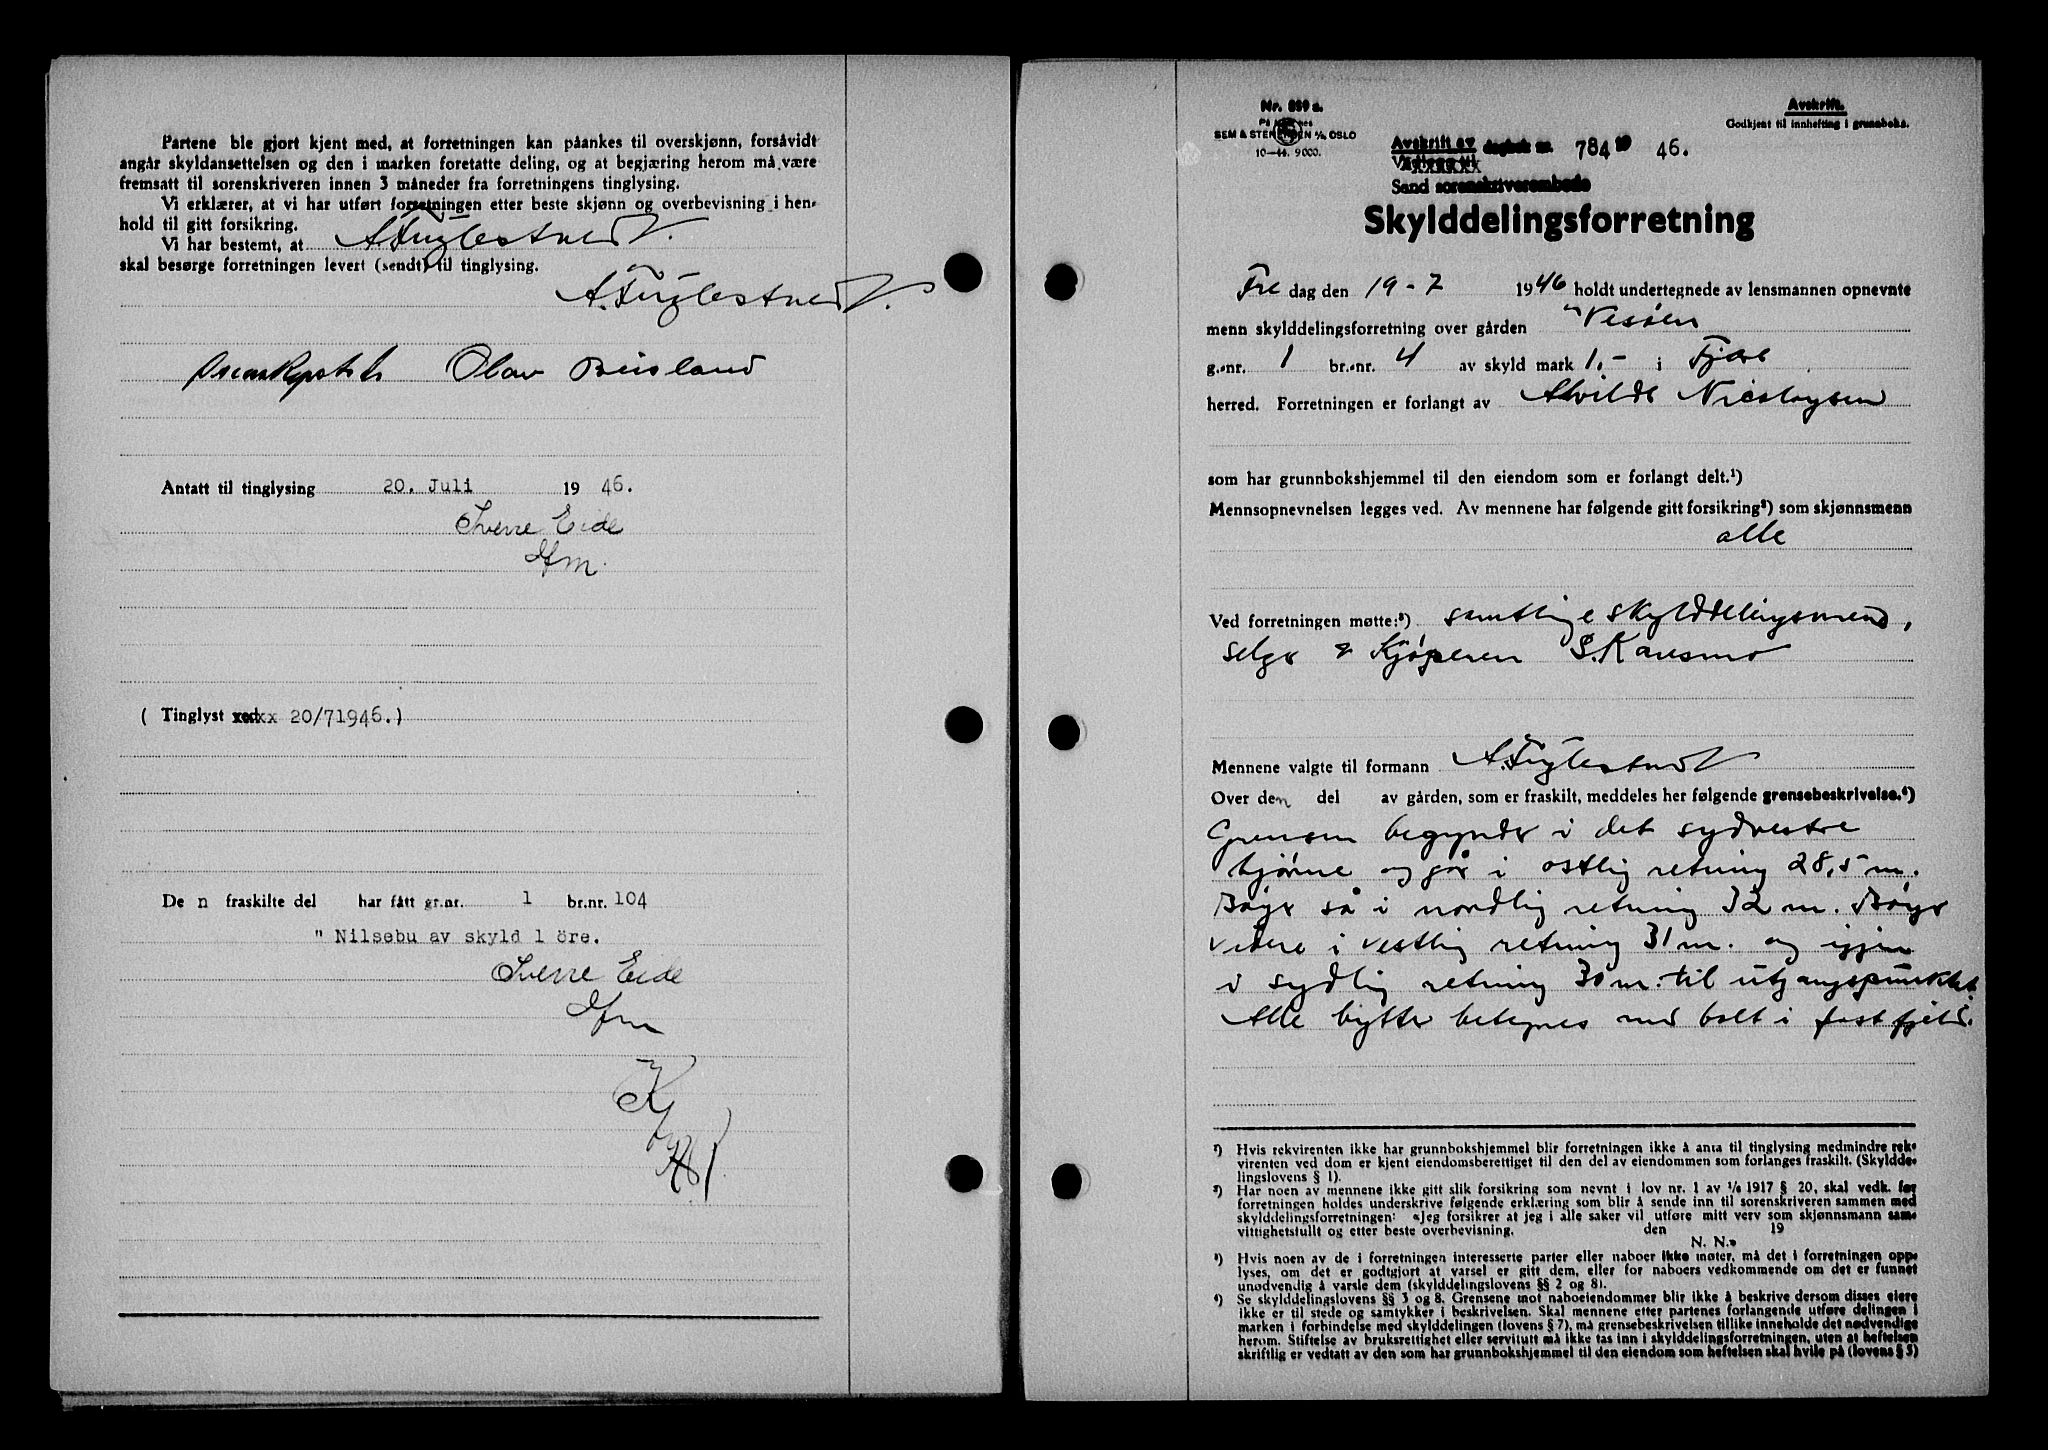 Partene ble gjort kjent med, at forretningen kan påankes til overskjønn, forsåvidt
angår skyldansettelsen og den i marken foretatte deling, og at begjæring herom må være
fremsatt til sorenskriveren innen 3 måneder fra forretningens tinglysing.
Vi erklærer, at vi har utført forretningen etter beste skjønn og overbevisning i hen-
hold til gitt forsikring.
Vi har bestemt, at A. Fuglestvedt
skal besørge forretningen levert (sendt) til tinglysing.
A. Fuglestvedt.
Olav Beisland
Antatt til tinglysing 20. Juli 1946.
Sverre Eide
( Tinglyst 20/71946.)
De n fraskilte del har fått gr.nr. 1 br.nr. 104
" Nilsebu av skyld 1 öre.
Sverre Eide
Nr. 859 a.
SEM & STENERSEN A/S, OSLO
10-44. 9000.
Avskrift.
Godkjent til innhefting i grunnboka.
Avskrift av dagbok nr. 784 19 46.
Sand sorenskriverembede
Skylddelingsforretning
Fre dag den 19-7 1946 holdt undertegnede av lensmannen opnevnte
menn skylddelingsforretning over gården "Vesöen
g.-nr. 1 br.-nr. 4 av skyld mark 1.- i Fjære
herred. Forretningen er forlangt av Alvilde Nicolaysen
som har grunnbokshjemmel til den eiendom som er forlangt delt.¹)
Mennsopnevnelsen legges ved. Av mennene har følgende gitt forsikring²) som skjønnsmenn
alle
Ved forretningen møtte:³) samtlige skylddelingsmenn,
selger & Kjøperen S. Karesmo
Mennene valgte til formann A. Fuglestvedt
Over den del av gården, som er fraskilt, meddeles her følgende grensebeskrivelse.⁴)
Grensen begynder i det sydvestre
hjørne og går i østlig retning 28,5 m.
Bøyer så i nordlig retning 32 m. Bøyer
videre i vestlig retning 31 m. og igjen
i sydlig retning 30 m. til utgangspunktet.
Alle bytter betegnes med bolt i fast fjeld.
¹) Hvis rekvirenten ikke har grunnbokshjemmel blir forretningen ikke å anta til tinglysing medmindre rek-
virenten ved dom er kjent eiendomsberettiget til den del av eiendommen som forlanges fraskilt. (Skyldde-
lingslovens § 1).
²) Har noen av mennene ikke gitt slik forsikring som nevnt i lov nr. 1 av ¹/₆ 1917 § 20, skal vedk. før
forretningen holdes underskrive følgende erklæring som blir å sende inn til sorenskriveren sammen med
skylddelingsforretningen: «Jeg forsikrer at jeg i alle saker vil utføre mitt verv som skjønnsmann sam-
vittighetsfullt og etter beste overbevisning. den 19
N. N.»
³) Hvis noen av de i forretningen interesserte parter eller naboer ikke møter, må det i forretningen opp-
lyses, om det er godtgjort at varsel er gitt dem, eller for naboers vedkommende om det er funnet
unødvendig å varsle dem (skylddelingslovens §§ 2 og 8).
⁴) Se skylddelingslovens §§ 3 og 8. Grensene mot naboeiendommer blir ikke å beskrive dersom disses eiere
ikke er til stede og samtykker i beskrivelsen. Skal mennene etter partenes forlangende utføre delingen i
marken i forbindelse med skylddelingen (lovens § 7), må grensebeskrivelsen tillike inneholde det nødvendige
herom. Stiftelse av bruksrettighet eller servitutt må ikke tas inn i skylddelingsforretningen, uten at heftelsen
skriftlig er vedtatt av den som har grunnbokshjemmel til den eiendom som heftelsen skal hvile på (lovens § 5)